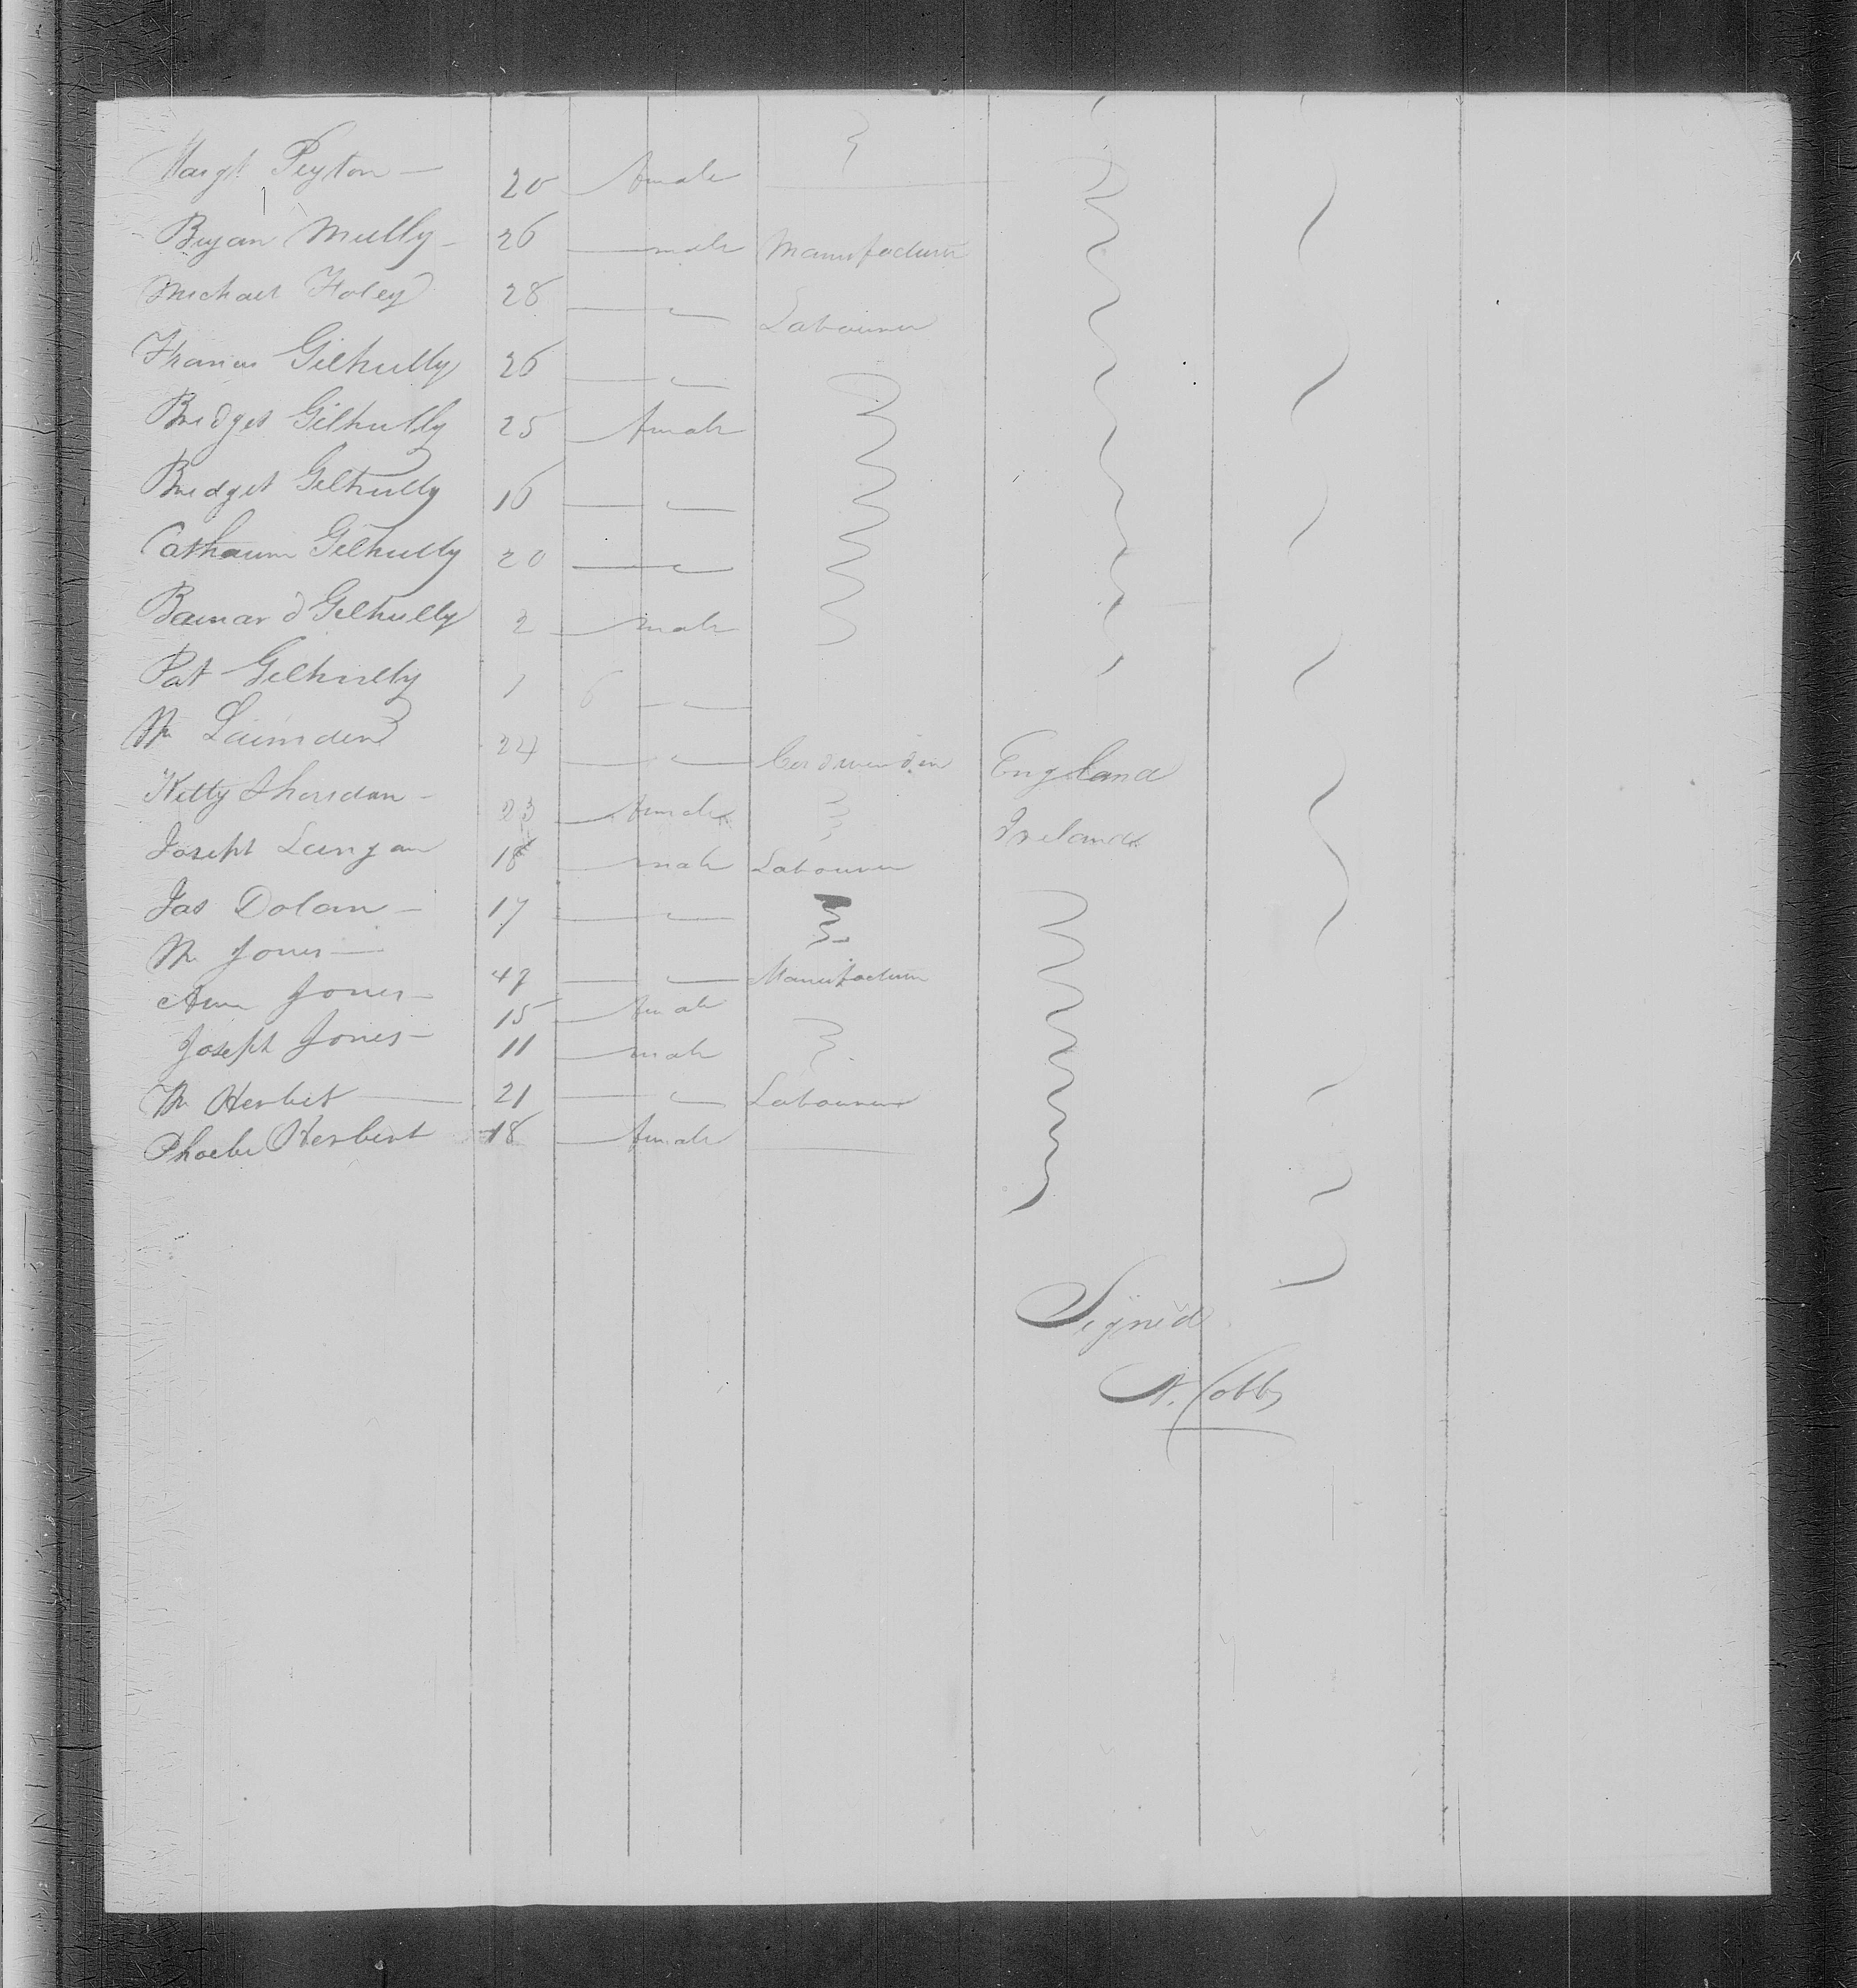 Margt Peyton — 20 — female
Bryan Mully — 26 — male Manufacturer
Michael Foley 28 — " Labourer
Francis Gilhully 26 — "
Bridget Gilhully 25 — female
Bridget Gilhully 16 — "
Catharine Gilhully 20 — "
Barnard Gilhully 2 — male
Pat Gilhully 1 6 — "
Wm 24 — " England
Kitty Sheridan — 23 — female Ireland
Joseph Langan 18 — male Labourer
Jas Dolan — 17 — "
Wm Jones — 47 — " Manufacturer
Ann Jones — 15 — female
Joseph Jones — 11 — male
Wm Herbet — 21 — " Labourer
Phoebe Herbert 18 — female
Signed
N. Cobb